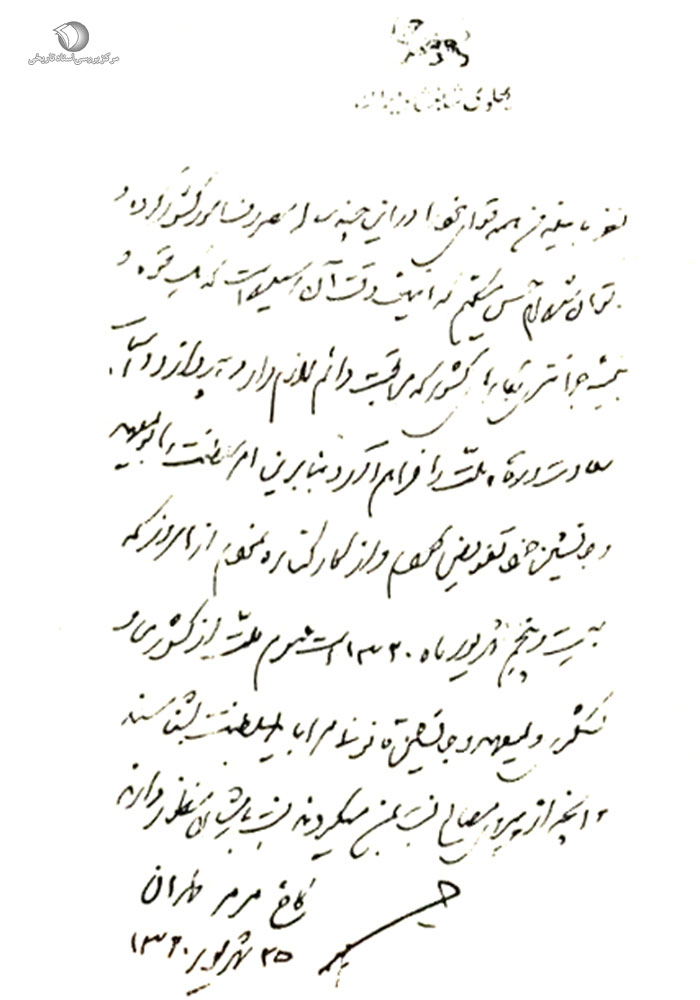 مرکز بررسی اسناد تاریخی
پهلوی شاهنشاه ایران
نظر باینکه من همه قوای خود را در این چند ساله مصروف امور کشور کرده و
ناتوان شده‌ام حس میکنم که اینک وقت آن رسیده است که یک قوه و
بنیه جوانتری بکارهای کشور که مراقبت دائم لازم دارد بپردازد و اسباب
سعادت و رفاه ملت را فراهم آورد بنابراین امور سلطنت را بولیعهد
و جانشین خود تفویض نمودم و از کار کناره نمودم از امروز که
بیست و پنج شهریور ماه ۱۳۲۰ است عموم ملت از کشوری و
لشگری ولیعهد و جانشین قانونی مرا باید بسلطنت بشناسند
و آنچه از پیروی مصالح نسبت بمن میکردند نسبت بایشان منظور دارند
کاخ مرمر طهران
۲۵ شهریور ۱۳۲۰